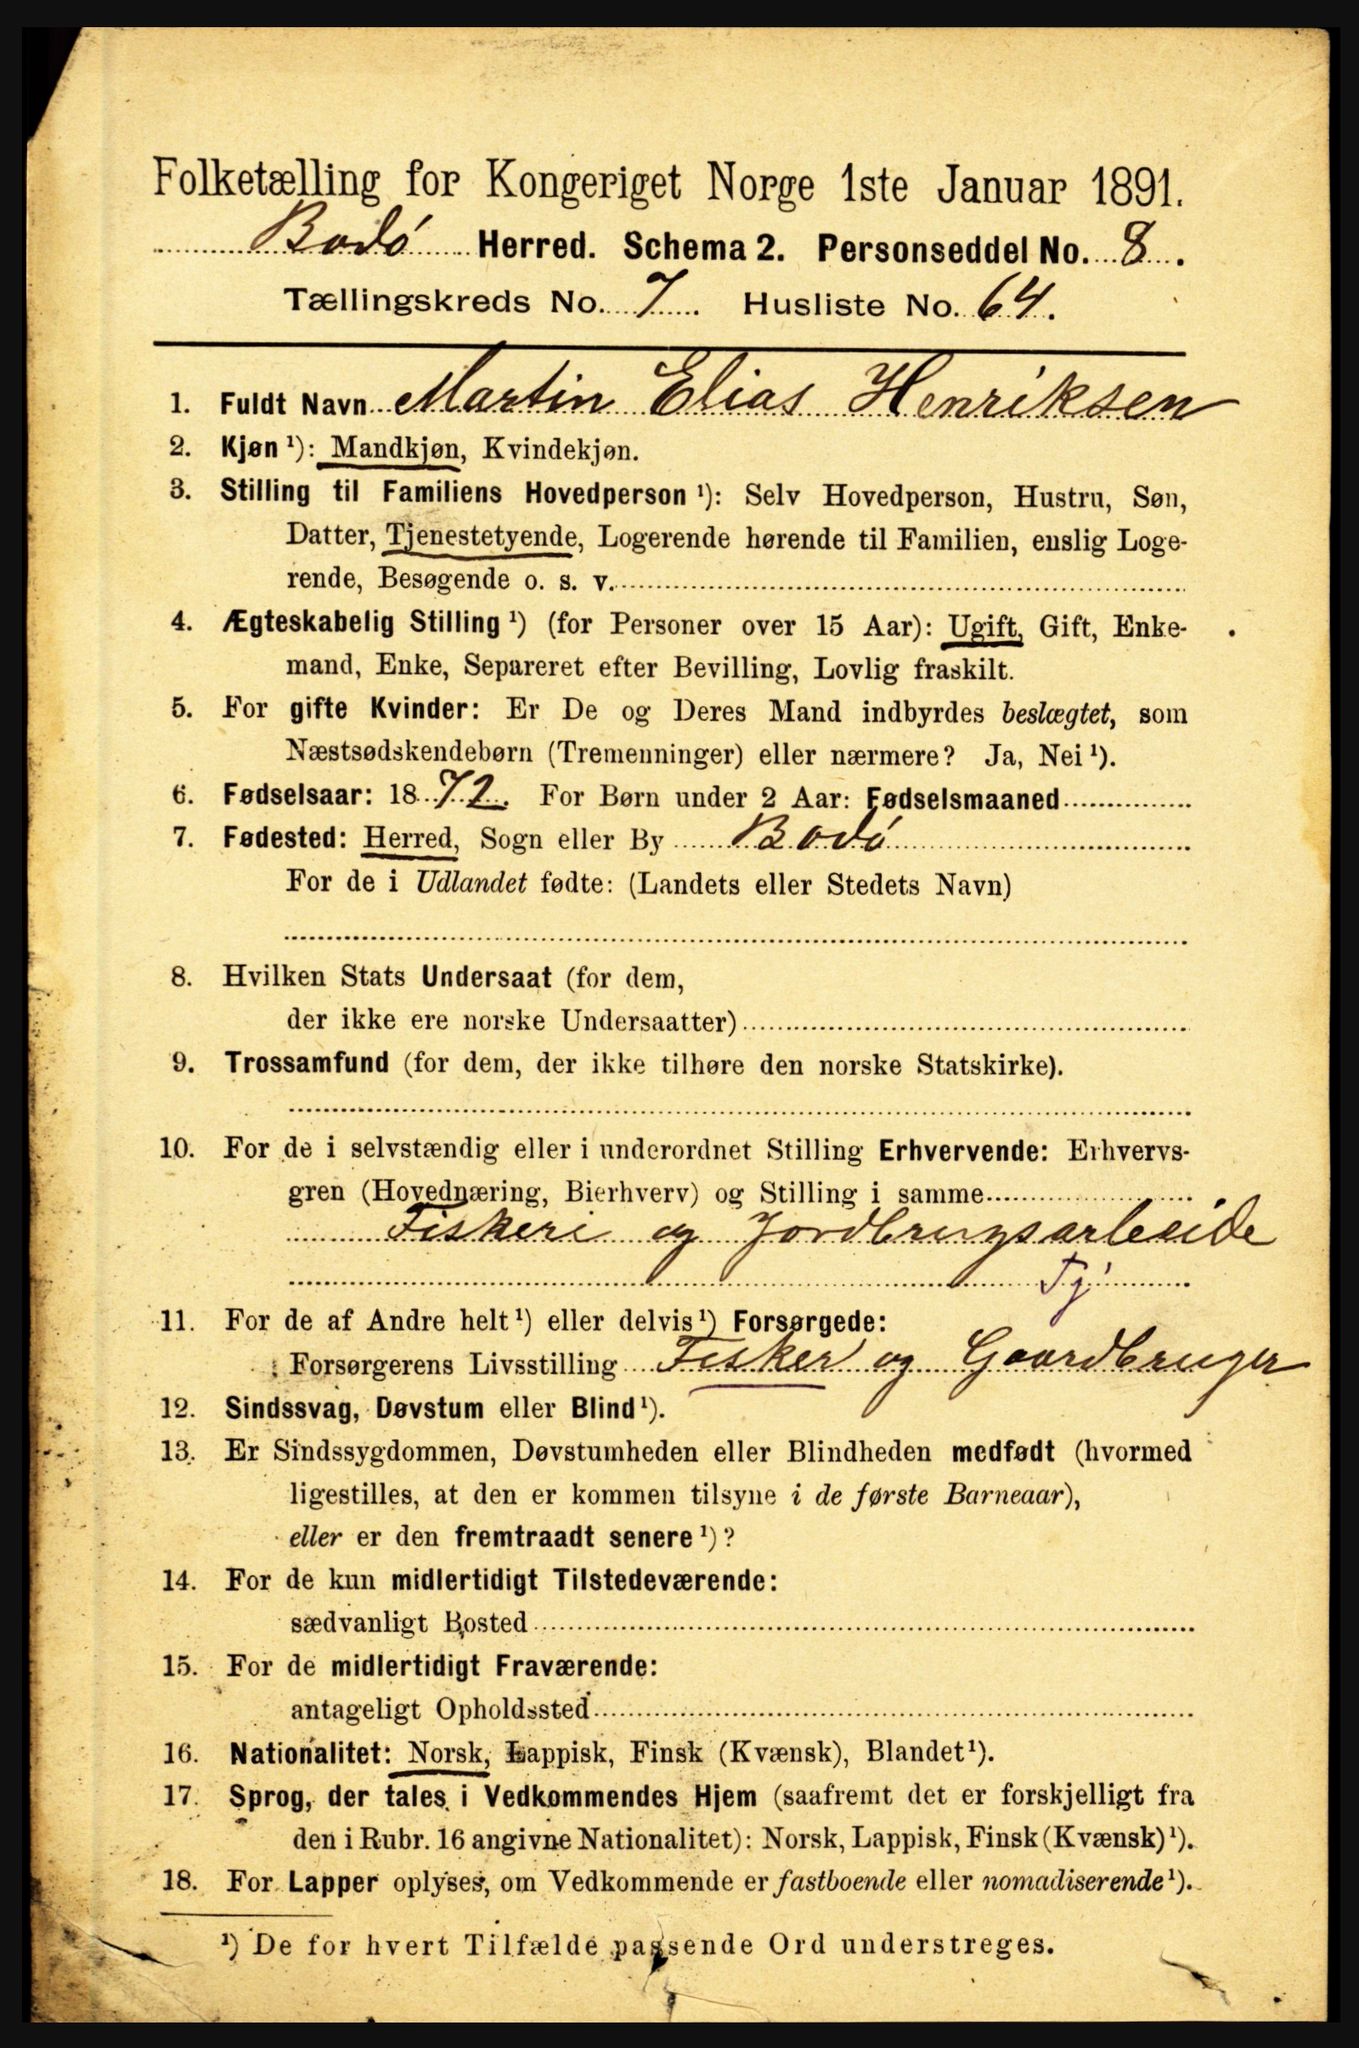 Folketælling for Kongeriget Norge 1ste Januar 1891.
Bodø Herred. Schema 2. Personseddel No. 8.
Tællingskreds No. 7. Husliste No. 64.
1. Fuldt Navn Martin Elias Henriksen
2. Kjøn ¹): Mandkjøn, Kvindekjøn.
3. Stilling til Familiens Hovedperson ¹): Selv Hovedperson, Hustru, Søn,
Datter, Tjenestetyende, Logerende hørende til Familien, enslig Loge-
rende, Besøgende o. s. v.
4. Ægteskabelig Stilling ¹) (for Personer over 15 Aar): Ugift, Gift, Enke-
mand, Enke, Separeret efter Bevilling, Lovlig fraskilt.
5. For gifte Kvinder: Er De og Deres Mand indbyrdes beslægtet, som
Næstsødskendebørn (Tremenninger) eller nærmere? Ja, Nei ¹).
6. Fødselsaar: 1872. For Børn under 2 Aar: Fødselsmaaned
7. Fødested: Herred, Sogn eller By Bodø
For de i Udlandet fødte: (Landets eller Stedets Navn)
8. Hvilken Stats Undersaat (for dem,
der ikke ere norske Undersaatter)
9. Trossamfund (for dem, der ikke tilhøre den norske Statskirke).
10. For de i selvstændig eller i underordnet Stilling Erhvervende: Erhvervs-
gren (Hovednæring, Bierhverv) og Stilling i samme
Fiskeri og Jordbrugsarbeide
Tj
11. For de af Andre helt ¹) eller delvis ¹) Forsørgede:
Forsørgerens Livsstilling Fisker og Gaardbruger
12. Sindssvag, Døvstum eller Blind ¹).
13. Er Sindssygdommen, Døvstumheden eller Blindheden medfødt (hvormed
ligestilles, at den er kommen tilsyne i de første Barneaar),
eller er den fremtraadt senere ¹)?
14. For de kun midlertidigt Tilstedeværende:
sædvanligt Bosted
15. For de midlertidigt Fraværende:
antageligt Opholdssted
16. Nationalitet: Norsk, Lappisk, Finsk (Kvænsk), Blandet ¹).
17. Sprog, der tales i Vedkommendes Hjem (saafremt det er forskjelligt fra
den i Rubr. 16 angivne Nationalitet): Norsk, Lappisk, Finsk (Kvænsk) ¹).
18. For Lapper oplyses, om Vedkommende er fastboende eller nomadiserende ¹).
¹) De for hvert Tilfælde passende Ord understreges.